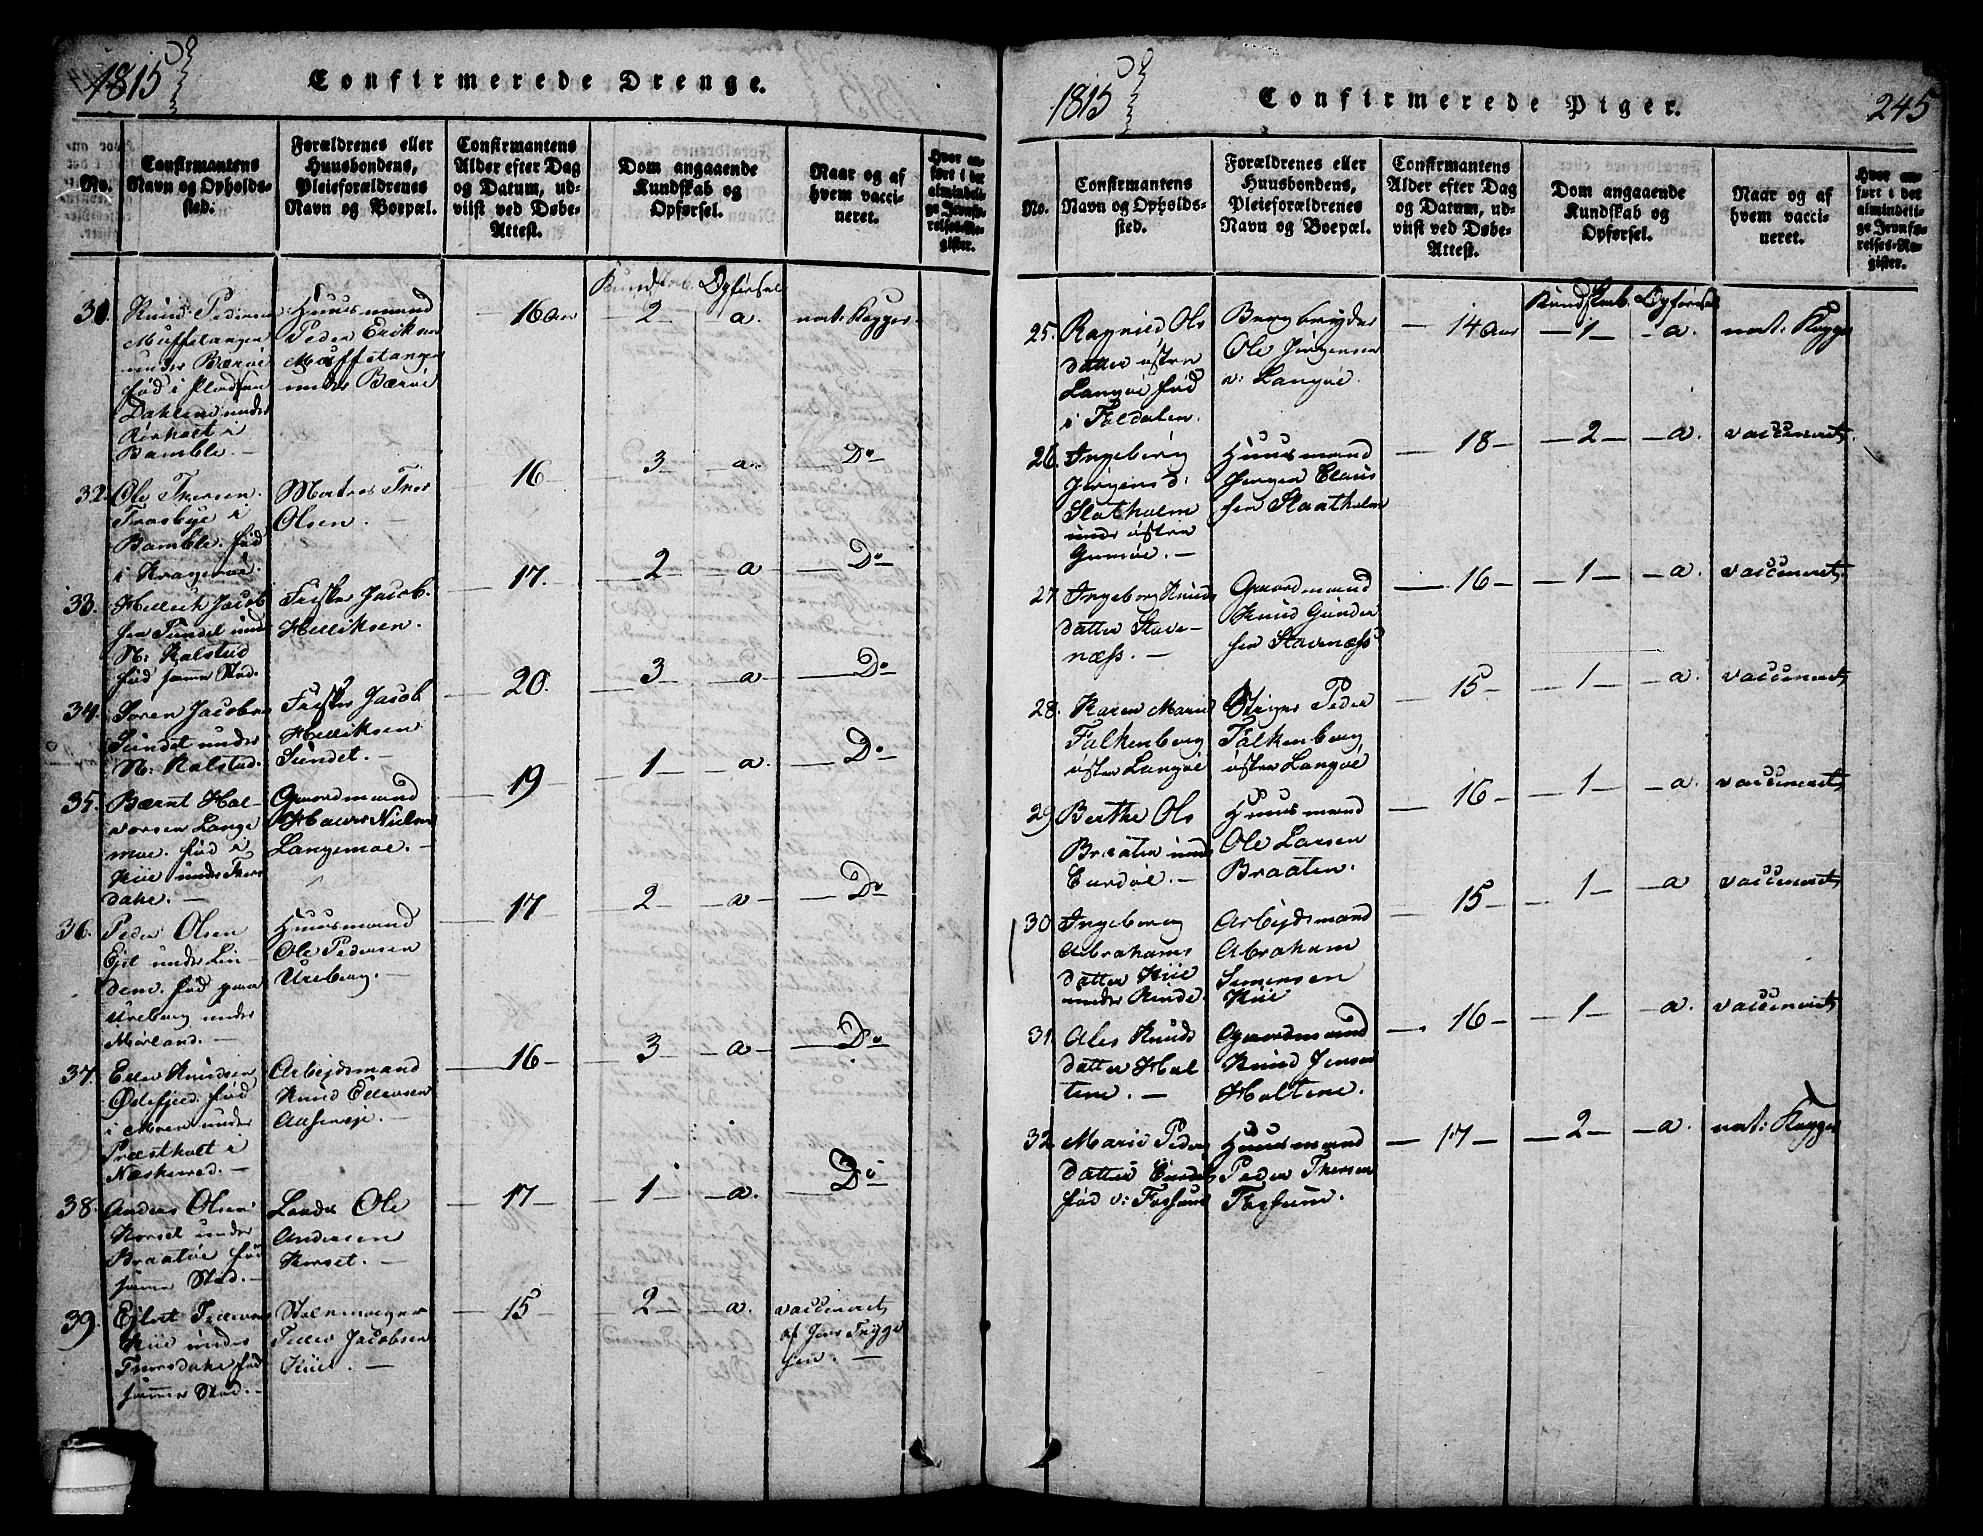 1815
Confirmerede Drenge.
No.
Confirmantens
Navn og Opholds-
sted.
Forældrenes eller
Huusbondens,
Pleieforældrenes
Navn og Boepæl.
Confirmantens
Alder efter Dag
og Datum, ud-
viist ved Døbe-
Attest.
Dom angaaende
Kundskab og
Opførsel.
Naar og af
hvem vacci-
neret.
Hvor an-
ført i det
almindeli-
ge Jevnfø-
relses-Re-
gister.
Kundskab Opførsel
31. Knud Pedersen
under Barøe
Dahlene under
Rørholt i
Bamble. —
Huusmand
Peder Eriksen
under Barøe
16 Aar — 2 — a. nat: Kopper
32. Ole Thorsen
Trosbye i
Bamble. fød
i Kragerøe.
Matros Thor
Olsen. —
16 — 3 — a. — Do
33. Hellrik Jacob
sen Sundet und
N: Kalstad
fød samme Stæd.
Fisker Jacob
Helliksen.
17. — 2 — a — Do
34. Søren Jacobsen
Sundet under
N: Kalstad.
Fisker Jacob
Helliksen
Sundet. —
20. — 3 — a. — Do
35. Bærnt Hal-
vorsen Lange
moe. fød i
Kiie under Thors
dahl. —
Gaardmand
Halvor Nielsen
Langemoe. —
19 — 1 — a. — Do
36. Peder Olsen
Ejet under Lin
dem. fød paa
Ureberg under
Mørland. —
Huusmand
Ole Pedersen
Ureberg. —
17 — 2 — a — Do
37. Knudsen
fød
i Moen under
Præstholt i
Arbejdsmand
Knud
16 — 3 — a — Do
38. Anders Olsen
Korset under
Braatøe fød
samme Stæd. —
Lods Ole
Andersen
Korset. —
17 — 1 — a. — Do
39. Ejlert Pedersen
Kiie under
Thorsdahl fød
samme Stæd. —
Peder Jacobsen
Kiie. —
15 — 2 — a. vaccineret
af Jens Trygge
sen. —
1815
Confirmerede Piger.
245
No.
Confirmantens
Navn og Opholds-
sted.
Forældrenes eller
Huusbondens,
Pleieforældrenes
Navn og Boepæl.
Confirmantens
Alder efter Dag
og Datum, ud-
viist ved Døbe-
Attest.
Dom angaaende
Kundskab og
Opførsel.
Naar og af
hvem vacci-
neret.
Hvor an-
ført i det
almindeli-
ge Jevnfø-
relses-Re-
gister.
Kundskab Opførsel
25. Ragnild Ols
datter østre
Langøe fød
i
Bergbryder
Ole Jørgensen
v: Langøe.
— 14 Aar — 1 — a. nat: Kopper
26. Ingeborg
Jørgens d:
Slotholm
under østre
Gumøe. —
Huusmand
Jørgen Claus
sen Slaatholm
— 18 — 2 — a. vaccineret.
27. Ingeborg Knuds
datter Stave-
næss. —
Gaardmand
Knud Gunder
sen Stavnæss
— 16 — 1 — a. vaccineret
28. Karen Marie
Falkenberg
østre Langøe
Peder
Falkenberg
østre Langøe
— 15 — 1 — a. vaccineret
29. Berthe Ols
Braaten under
Huusmand
Ole Larsen
Braaten.
— 16 — 1 — a. vaccineret
30 Ingeborg
Abrahams
datter Kiie
under Rinde.
Arbejdsmand
Abraham
Simensen
Kiie
— 15 — 1 — a vaccineret
31. Ales Knuds
datter Hol
tene. —
Gaardmand
Knud Jensen
Holtene.
— 16 — 1 — a. vaccineret
32. Marie Peders
datter
fød v: Fossund
Huusmand
Peder Thorsen
Fossum.
— 17 — 2 — a. nat: Kopper